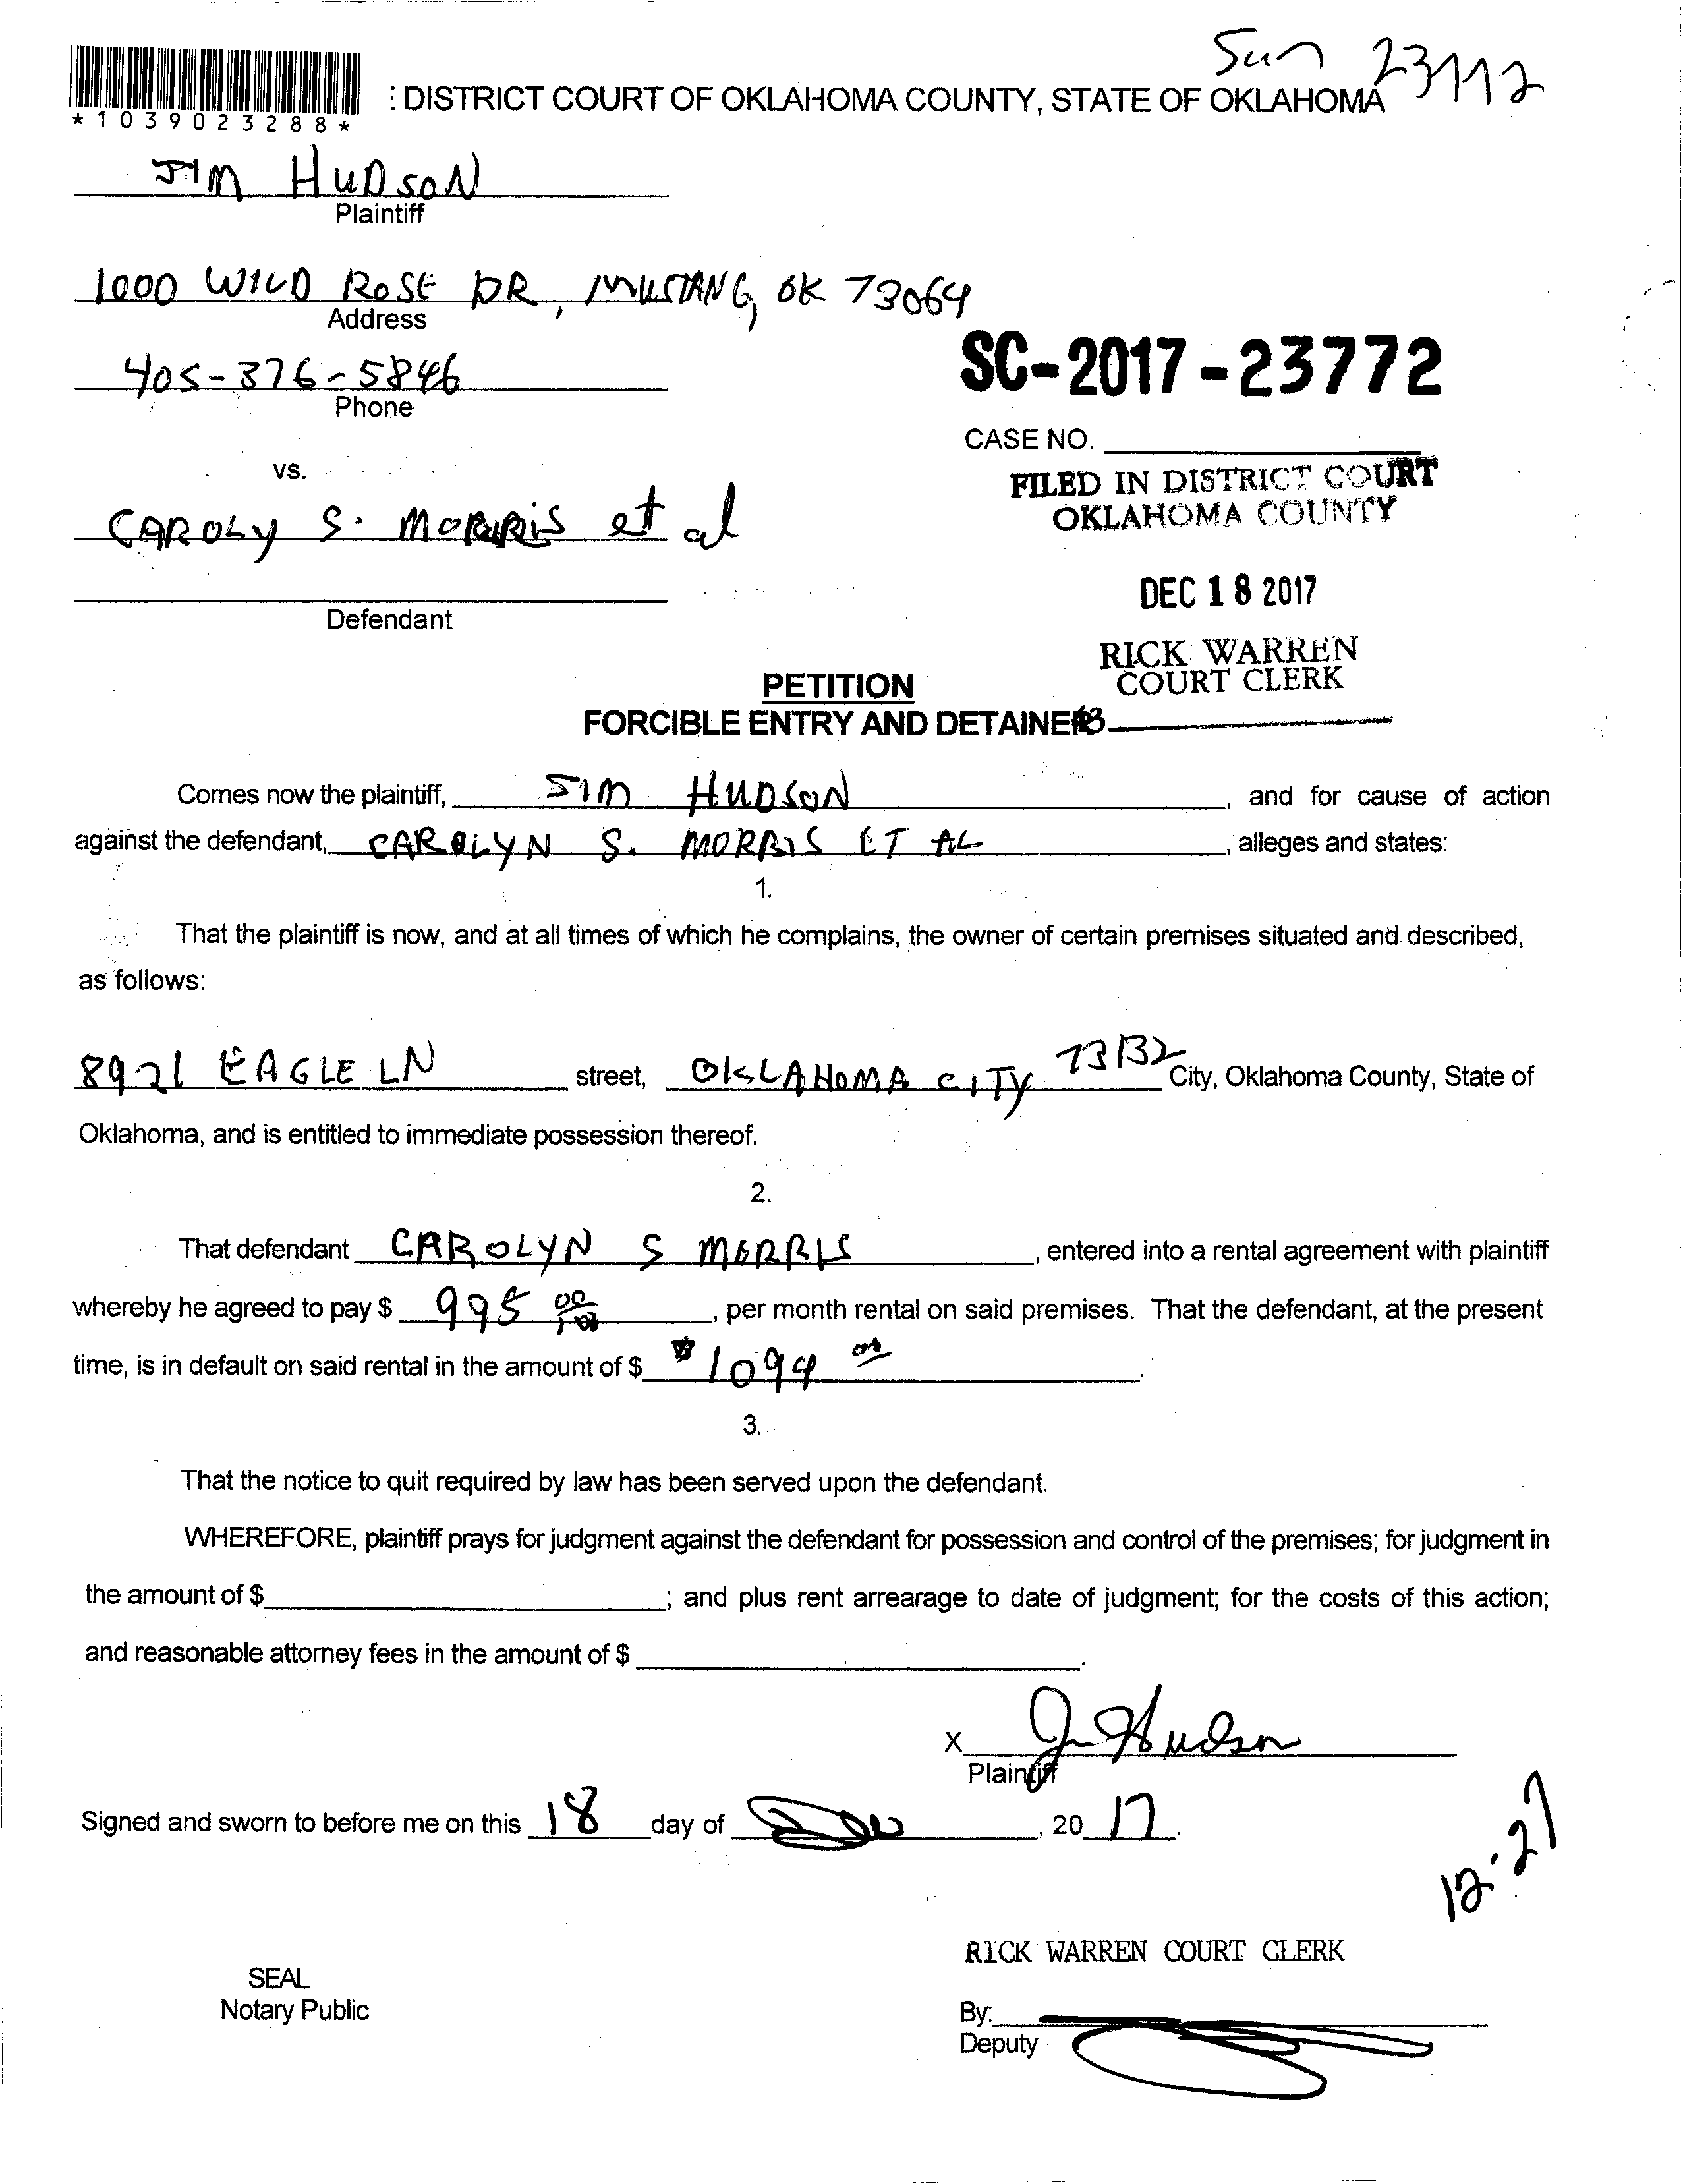 23772
*1039023288*
: DISTRICT COURT OF OKLAHOMA COUNTY, STATE OF OKLAHOMA
JIM HUDSON
Plaintiff
1000 WILD ROSE DR, MUSTANG, OK 73064
Address
405-376-5846
Phone
SC-2017-23772
CASE NO.
FILED IN DISTRICT COURT
OKLAHOMA COUNTY
vs.
CAROLY S. MORRIS et al
Defendant
DEC 18 2017
RICK WARREN
COURT CLERK
PETITION
FORCIBLE ENTRY AND DETAINER
Comes now the plaintiff, JIM HUDSON, and for cause of action
against the defendant, CAROLYN S. MORRIS ET AL, alleges and states:
1.
That the plaintiff is now, and at all times of which he complains, the owner of certain premises situated and described,
as follows:
8921 EAGLE LN street, OKLAHOMA CITY 73132 City, Oklahoma County, State of
Oklahoma, and is entitled to immediate possession thereof.
2.
That defendant CAROLYN S MORRIS, entered into a rental agreement with plaintiff
whereby he agreed to pay $ 995 00/100, per month rental on said premises. That the defendant, at the present
time, is in default on said rental in the amount of $ $1094 00.
3.
That the notice to quit required by law has been served upon the defendant.
WHEREFORE, plaintiff prays for judgment against the defendant for possession and control of the premises; for judgment in
the amount of $ ; and plus rent arrearage to date of judgment; for the costs of this action;
and reasonable attorney fees in the amount of $ .
X J Hudson
Plaintiff
Signed and sworn to before me on this 18 day of Dec, 2017.
12-27
RICK WARREN COURT CLERK
SEAL
Notary Public
By:
Deputy